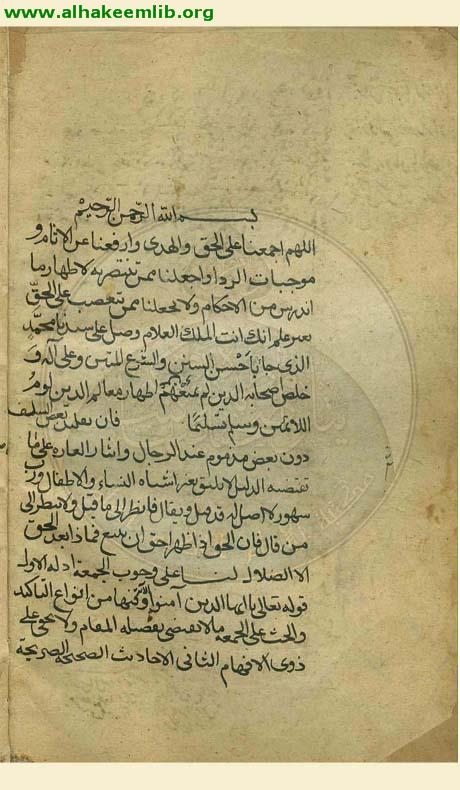 www.alhakeemlib.org
بسم الله الرحمن الرحيم
اللهم اجمعنا على الحق والهدى وارفعنا عن الاثام و
موجبات الردا واجعلنا ممن تنتصر به لاظهار ما
اندرس من الاحكام ولا تجعلنا ممن تعصب على الحق
بغير علم انك انت الملك العلام وصل على سيدنا محمد
الذى جا باحسن السنن والشرع المتين وعلى آله و
خلص صحابه الذين لم يمنعهم اظهار معالم الدين لوم
اللائمين وسلم تسليما فان تقليد بعض السلف
دون بعض مذموم عند الرجال وايثار العاده على ما
تقتضيه الدليل لا يليق بغير اشباه النساء والاطفال ورب
مشهور لا اصل له قد قيل ويقال فانظر الى ما قيل ولا تنظر الى
من قال فان الحق اذا ظهر احق ان يتبع فماذا بعد الحق
الا الضلال لنا على وجوب الجمعة ادلة الاول
قوله تعالى يا ايها الذين آمنوا من انواع التاكيد
والحث على الجمعة ما لا يقتضى تفصيله المقام ولا يخفى على
ذوى الافهام الثانى الاحاديث الصحيحة الصريحة